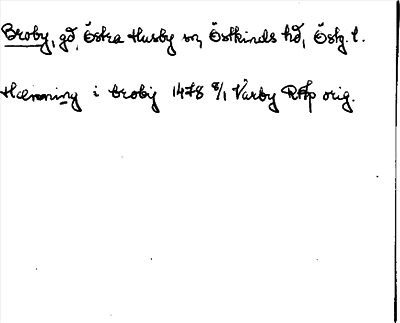 Broby, gd, Östra Husby sn, Östkinds hd, Östg. l.
Hænning i broby 1478 8/1 Varby RAp orig.